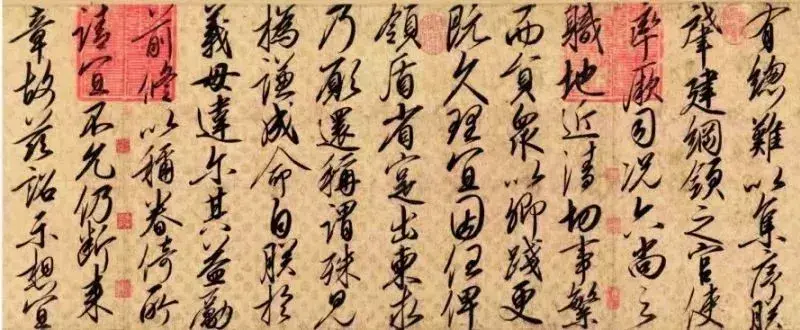 有總難以集序朕
肇建綱領之官使
率厥司况六尚之
職地近清切事繁
而員衆以卿踐更
既久理宜因任俾
領盾省寔出柬求
乃願還稱謂殊見
撝謙成命自朕於
義毋違尔其益勵
前修以稱眷倚所
請宜不允仍斷來
章故茲詔示想宜